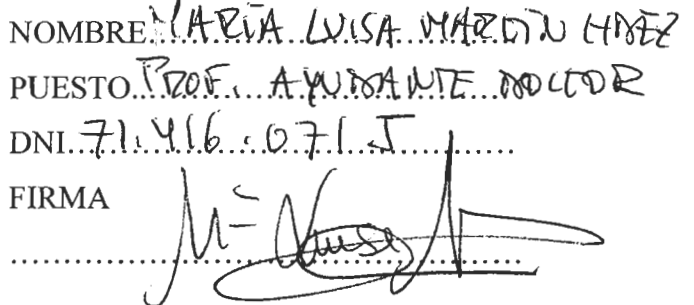 NOMBRE MARIA LUISA MARTIN HDEZ
PUESTO PROF. AYUDANTE DOCTOR
DNI 71.416.071 J
FIRMA
Mª Luisa